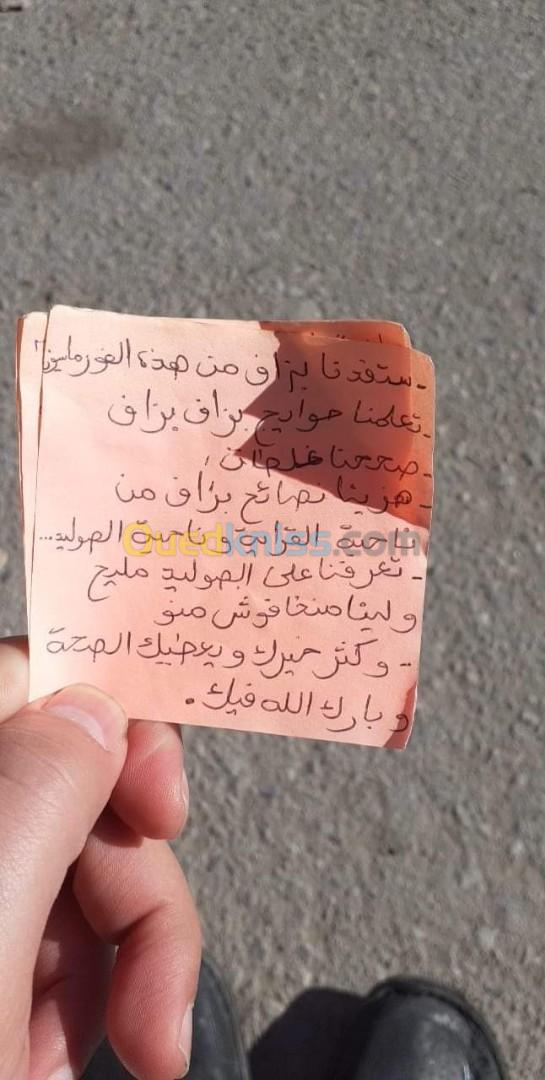 - ستفدنا بزاف من هذه الفورماسيون
- تعلمنا حوايج بزاف بزاف
- صححنا غلطات
- هزينا نصائح بزاف من
ناحية القرامة و ناحية الصوليد...
- تعرفنا على الصوليد مليح
و لينا منخافوش منو
- و كثر خيرك و يعطيك الصحة
و بارك الله فيك.
Ouedkniss.com